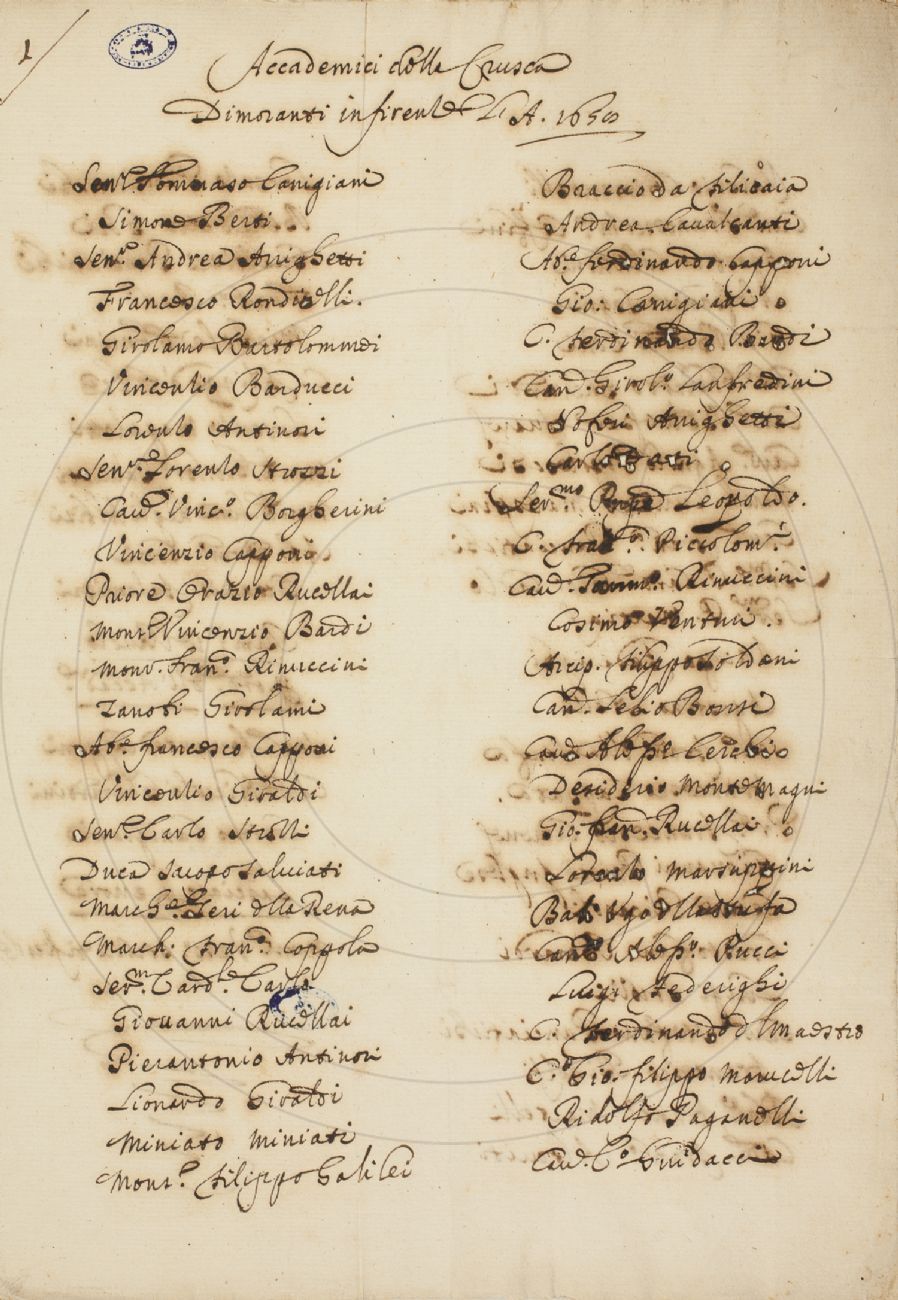 1
Accademici della Crusca
Dimoranti in firenze L'A. 1650
Sen.r Tommaso Canigiani
Simone Berti
Sen.re Andrea Arrighetti
Francesco Rondinelli.
Girolamo Bartolommei
Vincenzio Barducci
Lorenzo Antinori
Sen.re Lorenzo Strozzi
Cau.re Vinc.o Borgherini
Vincenzio Capponi
Priore Orazio Rucellai
Mons.r Vincenzio Bardi
Mons.r Fran.o Rinuccini
Zanobi Girolami
Ab.e francesco Capponi
Vincenzio Giraldi
Sen.re Carlo Strozzi
Duca Jacopo Salviati
March.e Geri della Rena
March: Fran.o Coppola
Ser.m Card.le Carlo
Giovanni Rucellai
Pierantonio Antinori
Lionardo Giraldi
Miniato Miniati
Mons.r Filippo Galilei
Braccio da Filicaia
Andrea Cavalcanti
Ab.e ferdinando Capponi
Gio: Canigiani
C. Ferdinando Bardi
Cau.r Girol.o Lanfredini
Noferi Arrighetti
Carlo Dati
Ser.mo Leopoldo.
C. Fran.o Piccolom.i
Cau.r Tomm.o Rinuccini
Cosimo Venturi.
Arcip. Filippo Soldani
Can.o Lelio Bonsi
Cau.r Aless.o Cerchi
Desiderio Montemagni
Gio: fran.o Rucellai
Lorenzo Marsuppini
Balì Ugo della Stufa
Can.o Aless.o Pucci
Luigi Federighi
C. Ferdinando del Maestro
C.o Gio: filippo Marucelli
Ridolfo Paganelli
Cau.r Guidacci